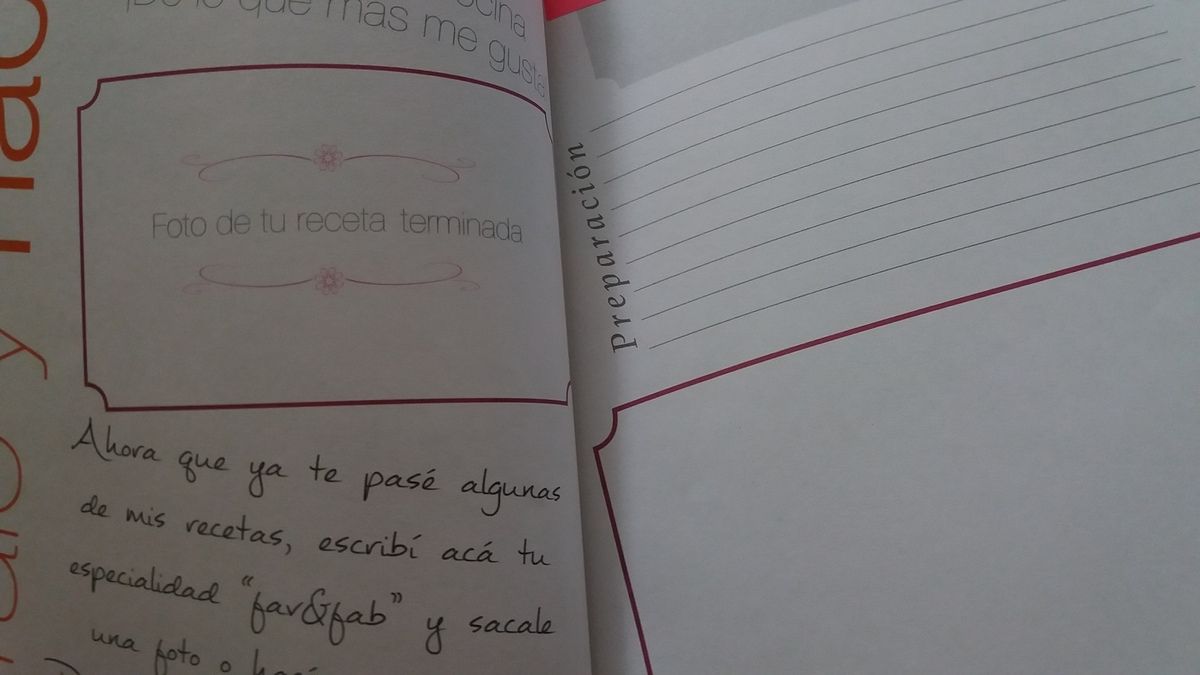 que más me gusta
Foto de tu receta terminada
Ahora que ya te pasé algunas
de mis recetas, escribí acá tu
especialidad "fav&fab" y sacale
una foto o
Preparación